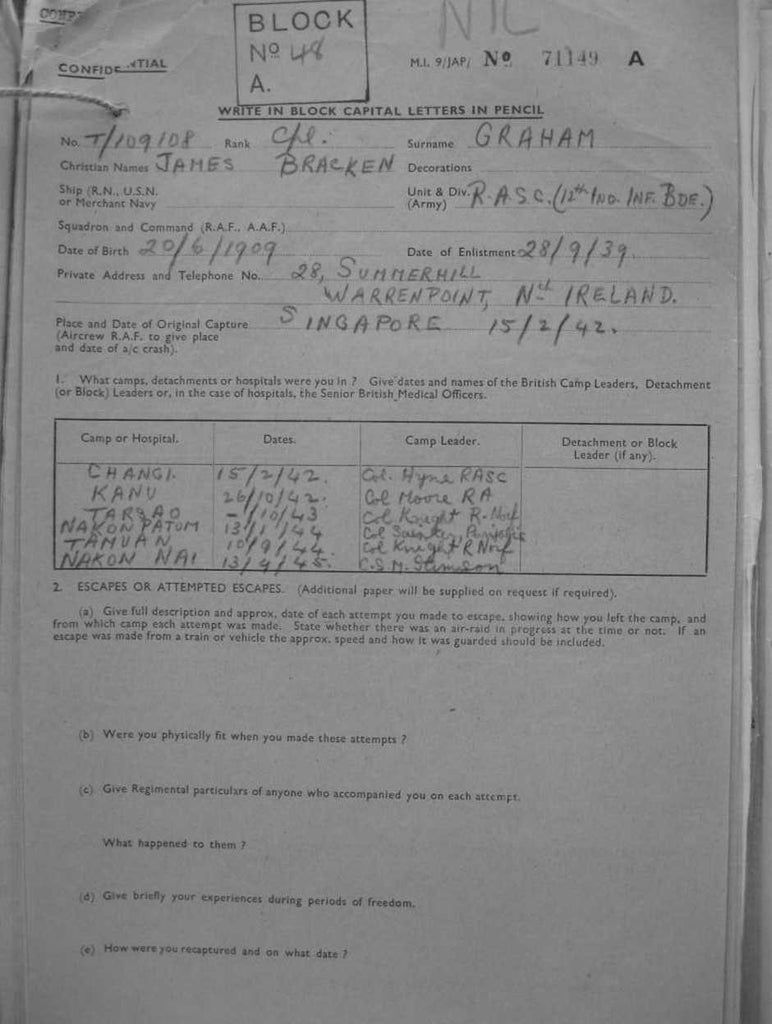 NIL
BLOCK
Nº 48
A.
CONFIDENTIAL
M.I. 9/JAP/ Nº 71149 A
WRITE IN BLOCK CAPITAL LETTERS IN PENCIL
No. T/109108 Rank Cpl. Surname GRAHAM
Christian Names JAMES BRACKEN Decorations
Ship (R.N., U.S.N. or Merchant Navy
Unit & Div. (Army) R.A.S.C. (12th IND. INF. BDE.)
Squadron and Command (R.A.F., A.A.F.)
Date of Birth 20/6/1909 Date of Enlistment 28/9/39.
Private Address and Telephone No. 28, SUMMERHILL
WARRENPOINT, Nth IRELAND.
Place and Date of Original Capture SINGAPORE 15/2/42.
(Aircrew R.A.F. to give place
and date of a/c crash).
1. What camps, detachments or hospitals were you in ? Give dates and names of the British Camp Leaders, Detachment
(or Block) Leaders or, in the case of hospitals, the Senior British Medical Officers.
Camp or Hospital. Dates. Camp Leader. Detachment or Block
Leader (if any).
CHANGI. 15/2/42. Col. Hyne RASC
KANU 26/10/42. Col Moore RA
TARSAO -/10/43 Col Knight R. Norf
NAKON PATOM 13/1/44 Col
TAMUAN 10/9/44 Col Knight R Norf
NAKON NAI 13/4/45. C.S.M. Stimson
2. ESCAPES OR ATTEMPTED ESCAPES. (Additional paper will be supplied on request if required).
(a) Give full description and approx. date of each attempt you made to escape, showing how you left the camp, and
from which camp each attempt was made. State whether there was an air-raid in progress at the time or not. If an
escape was made from a train or vehicle the approx. speed and how it was guarded should be included.
(b) Were you physically fit when you made these attempts ?
(c) Give Regimental particulars of anyone who accompanied you on each attempt.
What happened to them ?
(d) Give briefly your experiences during periods of freedom.
(e) How were you recaptured and on what date ?